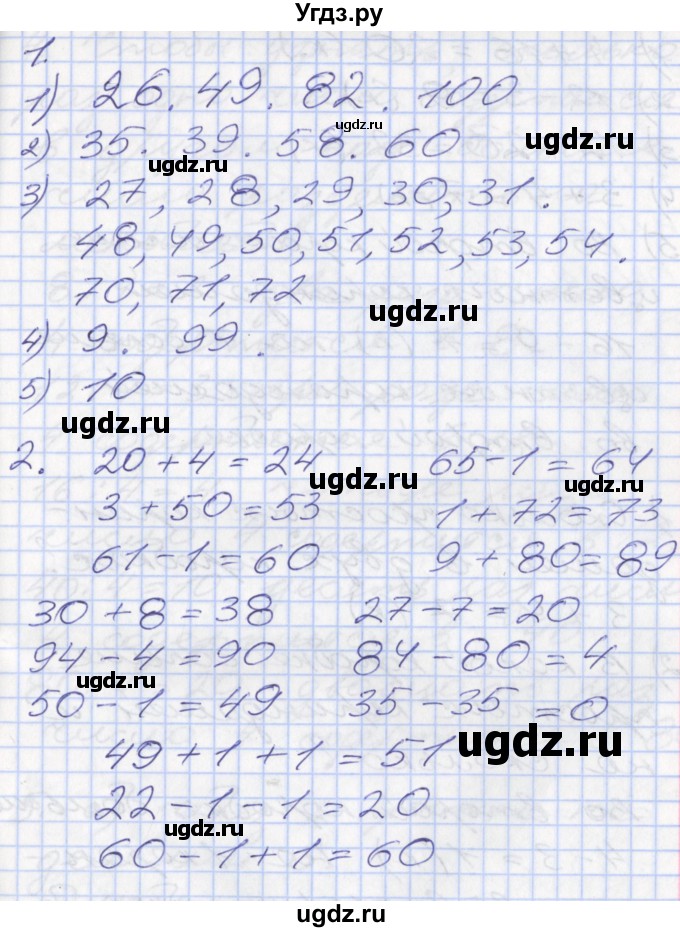 Угдз.ру
1.
1) 26. 49. 82. 100
ugdz.ru
2) 35. 39. 58. 60
ugdz.ru
ugdz.ru
3) 27, 28, 29, 30, 31.
48, 49, 50, 51, 52, 53, 54.
70, 71, 72
ugdz.ru
4) 9. 99.
5) 10
ugdz.ru
2. 20 + 4 = 24 65 - 1 = 64
ugdz.ru ugdz.ru
3 + 50 = 53 1 + 72 = 73
61 - 1 = 60 9 + 80 = 89
30 + 8 = 38 27 - 7 = 20
94 - 4 = 90 84 - 80 = 4
ugdz.ru
50 - 1 = 49 35 - 35 = 0
49 + 1 + 1 = 51
ugdz.ru
22 - 1 - 1 = 20
ugdz.ru
60 - 1 + 1 = 60
ugdz.ru